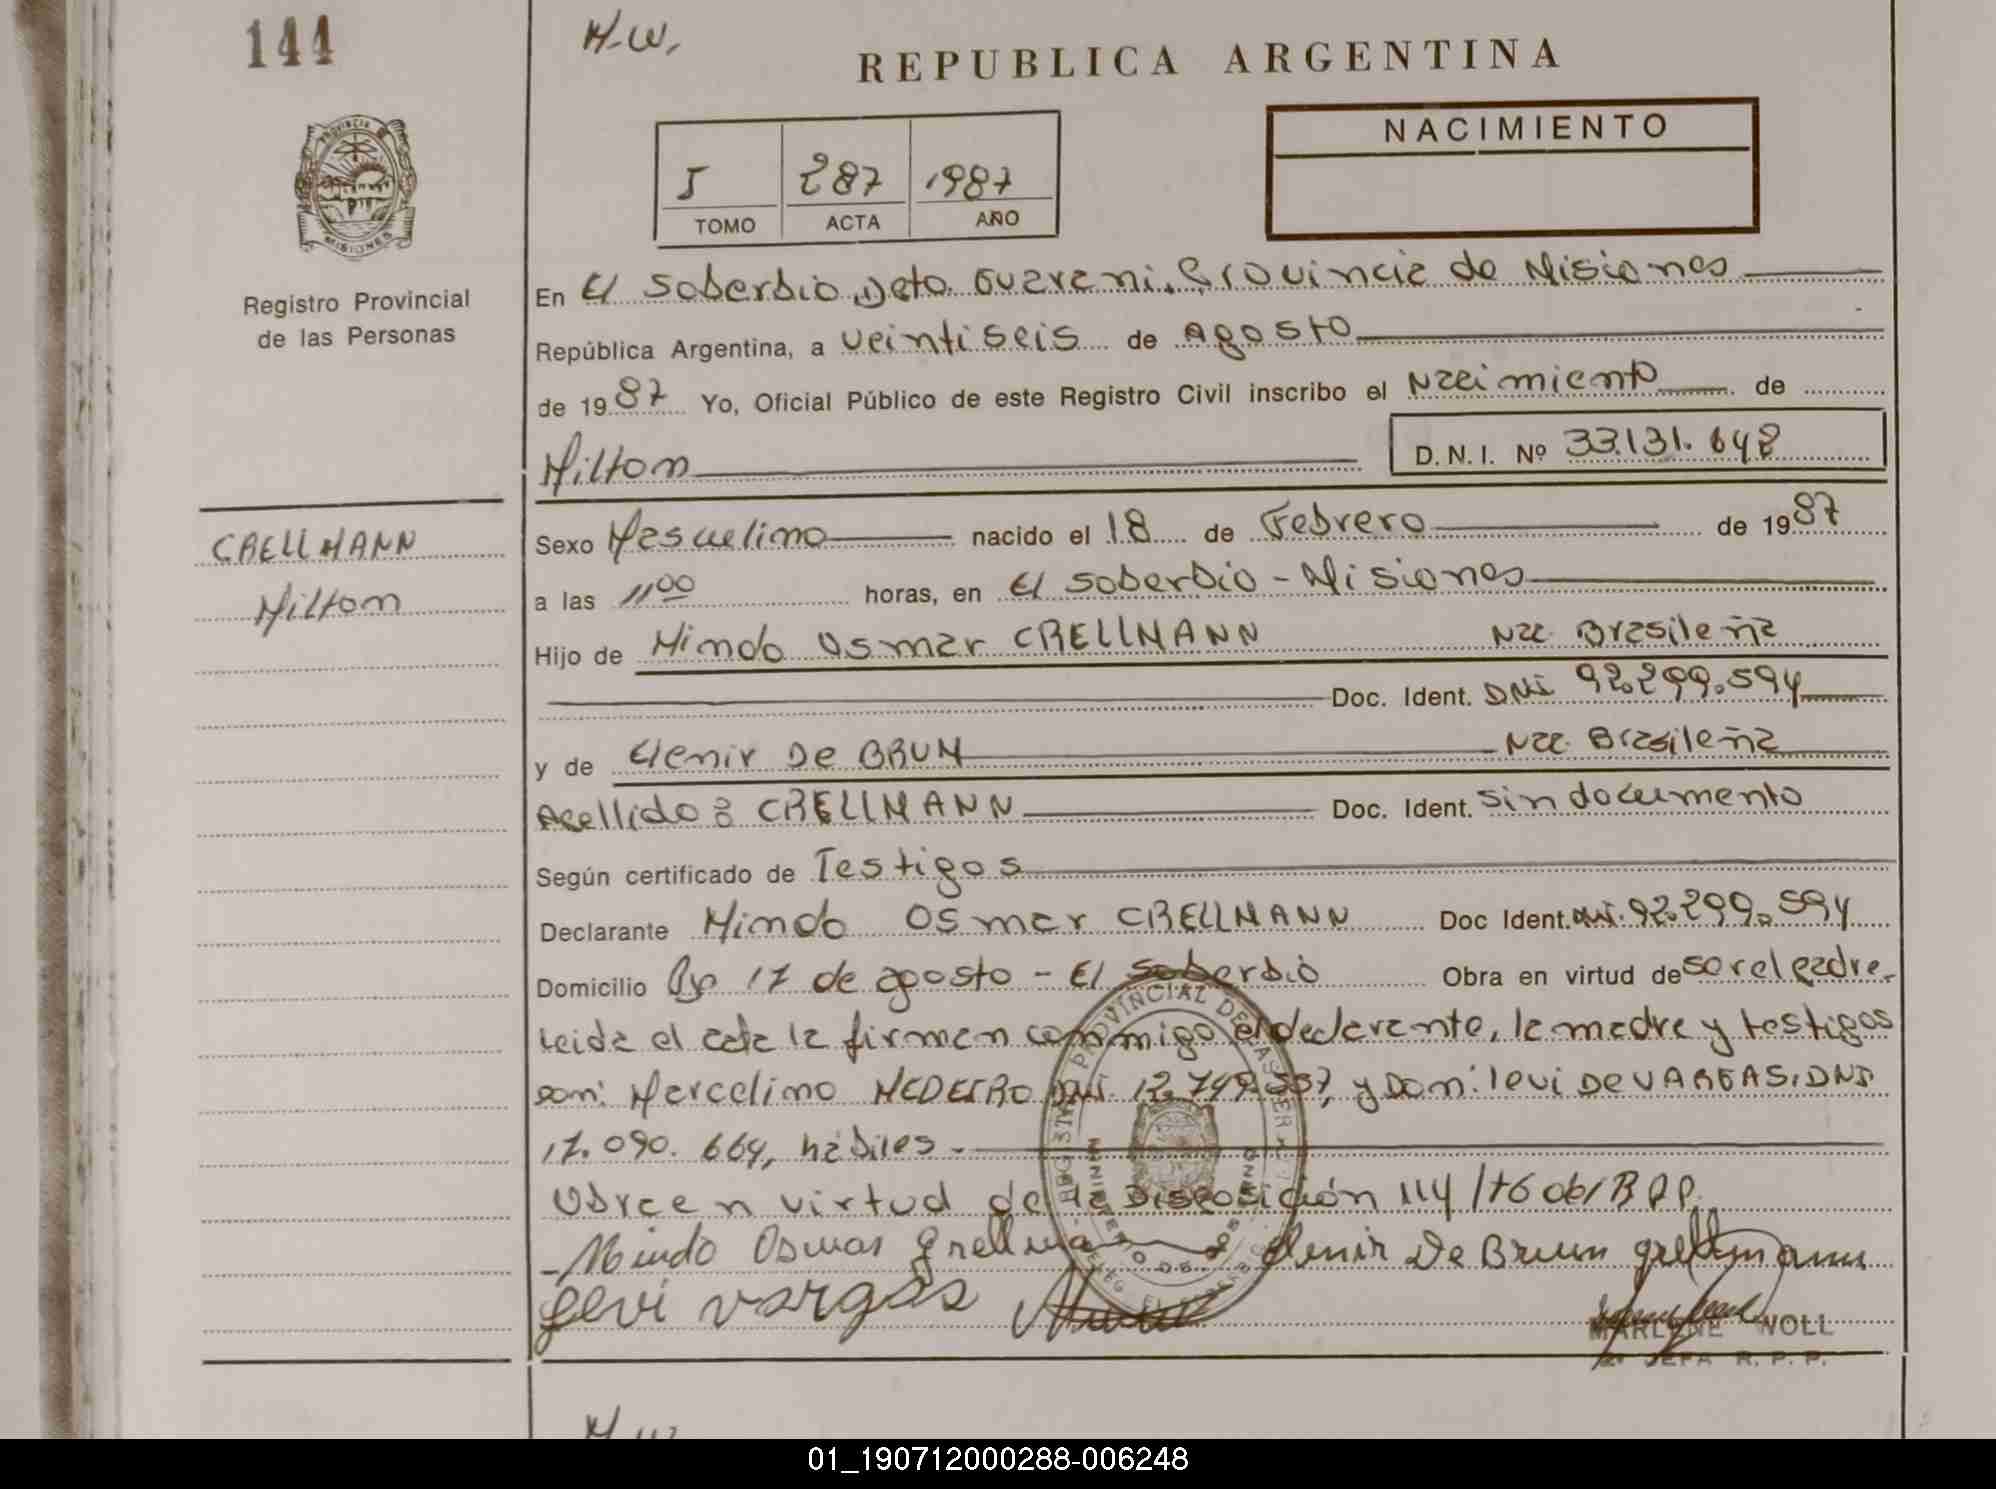 144
H-W.
REPUBLICA ARGENTINA
NACIMIENTO
5 287 1987
TOMO ACTA AÑO
PROVINCIA
MISIONES
Registro Provincial
de las Personas
En El Soberbio, Dpto. Guarani, Provincia de Misiones
República Argentina, a veintiseis de Agosto
de 1987 Yo, Oficial Público de este Registro Civil inscribo el Nacimiento de
Milton D.N.I. Nº 33.131.648
CRELLMANN
Milton
Sexo Masculino nacido el 18 de Febrero de 1987
a las 11 00 horas, en El Soberbio - Misiones
Hijo de Mindo Osmar CRELLMANN Nac. Brasileña
Doc. Ident. DNI 92.299.594
y de Elenir De BRUM Nac. Brasileña
Apellido: CRELLMANN Doc. Ident. Sin documento
Según certificado de Testigos
Declarante Mindo Osmar CRELLMANN Doc Ident. DNI. 92.299.594
Domicilio Bº 17 de agosto - El Soberbio Obra en virtud de ser el padre.
Leida el acta la firman conmigo el declarante, la madre y testigos
son: Marcelino MEDEIRO DNI. 12.749.557, y Don: Levi De VARGAS, DNI
17.090.664, hábiles.-
Obra en virtud de la Disposición 114/76 del R P P.
Mindo Osmar Grellma Elenir De Brum Grellmann
Levi Vargas
MARLENE WOLL
JEFA R. P. P.
REGISTRO PROVINCIAL DE LAS PER
H.W.
01_190712000288-006248